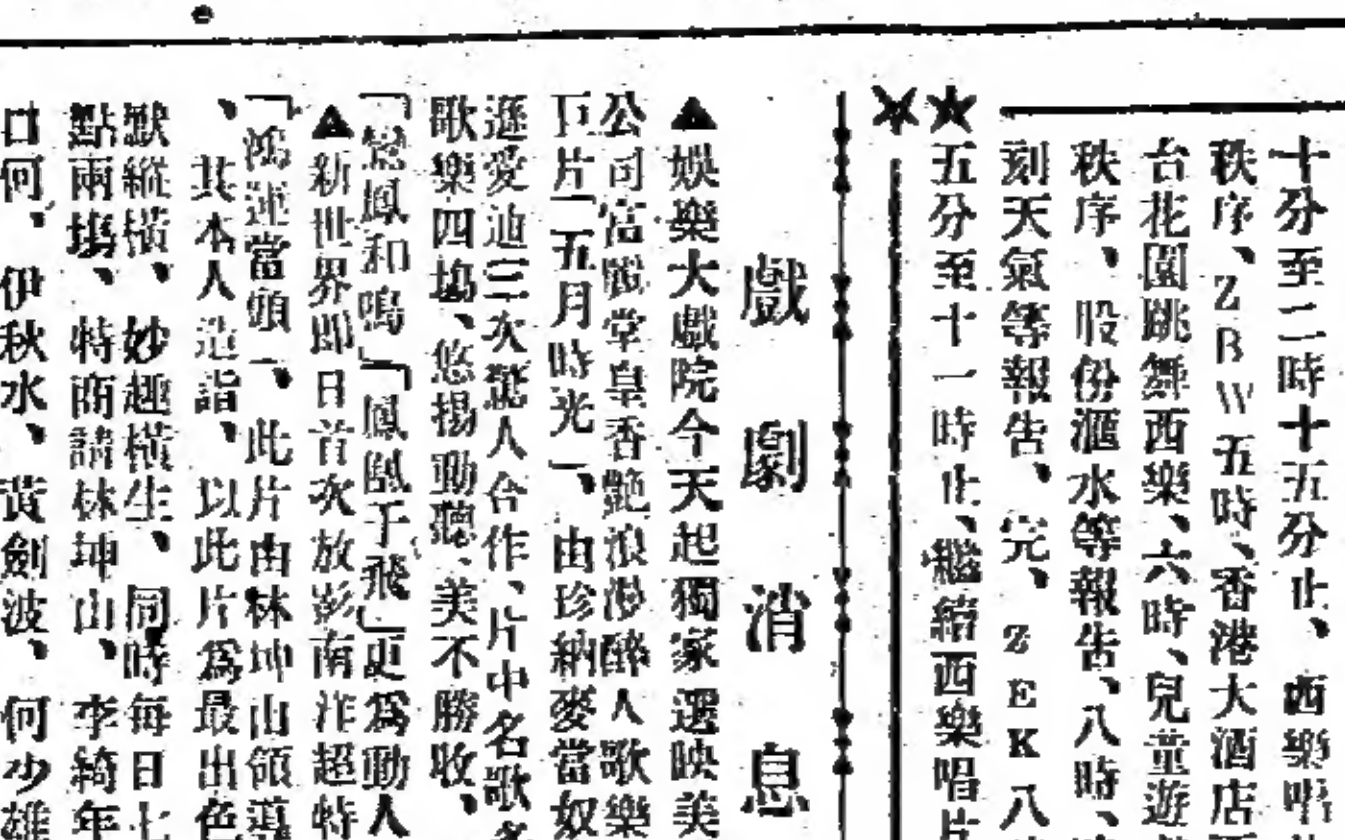 十分至二時十五分止、西樂唱
秩序、ZBW五時、香港大酒店
台花園跳舞西樂、六時、兒童遊
秩序、股份滙水等報告、八時、
刻天氣等報告、完、ZEK八
五分至十一時止、繼續西樂唱片
戲劇消息
▲娛樂大戲院今天起獨家選映美
公司富麗堂皇香艷浪漫醉人歌樂
巨片「五月時光」、由珍納麥當奴
遜愛迪三次驚人合作、片中名歌名
歌樂四塲、悠揚動聽、美不勝收、
「鸞鳳和鳴」「鳳凰于飛」更爲動人
▲新世界即日首次放影南洋超特
「鴻運當頭」、此片由林坤山領導
、其本人造詣、以此片爲最出色
獸縱橫、妙趣橫生、同時每日七
點兩塲、特商請林坤山、李綺年
口何、伊秋水、黃劍波、何少雄